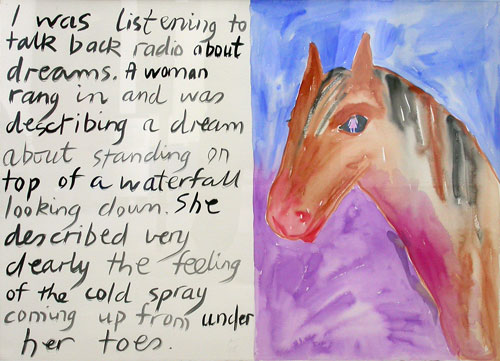 I was listening to
talk back radio about
dreams. A woman
rang in and was
describing a dream
about standing on
top of a waterfall
looking down. She
described very
clearly the feeling
of the cold spray
coming up from under
her toes.